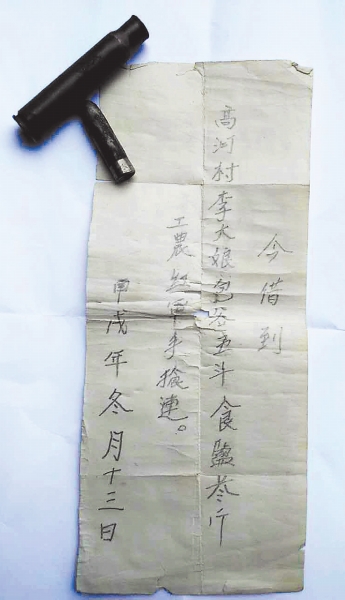 今借到
高河村李大娘包谷五斗食盐叁斤
工農红軍手槍連。
甲戌年冬月十三日